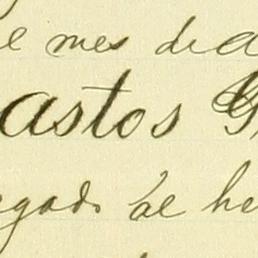 e mes de a
astos G
egado de he